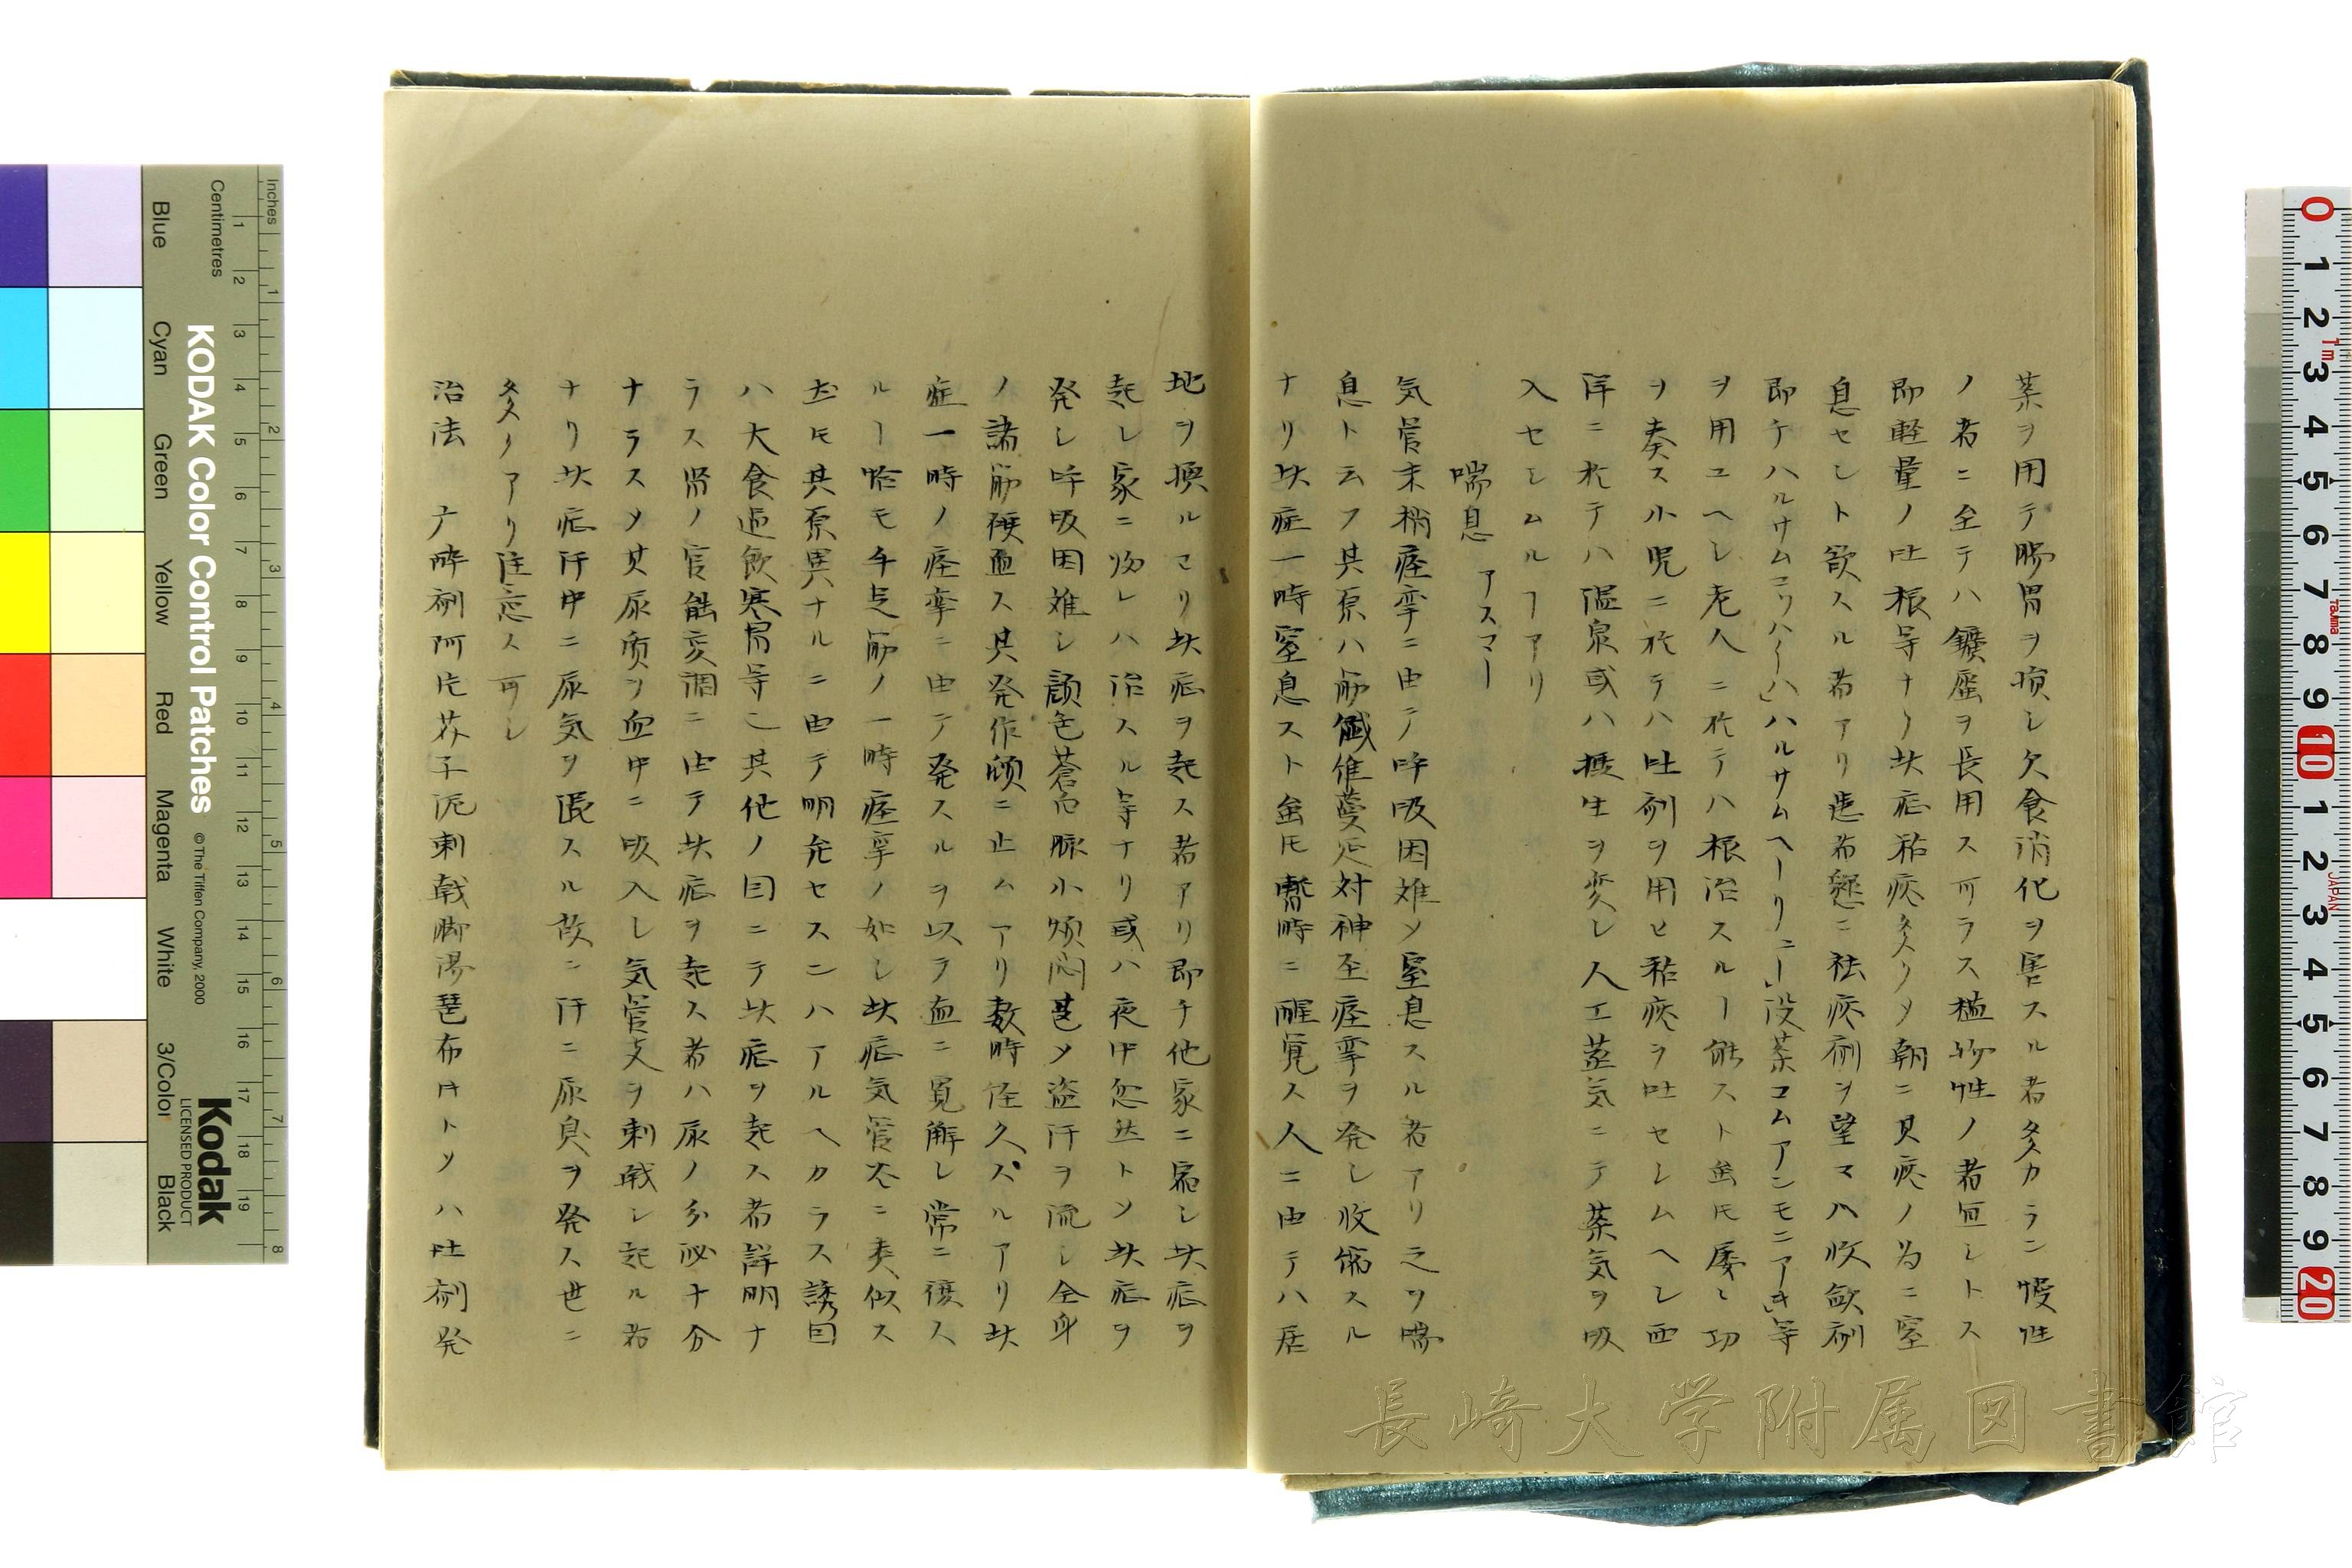 薬ヲ用テ腸胃ヲ損シ欠食消化ヲ害スル者多カラン慢性
ノ者ニ至テハ鑛屬ヲ長用ス可ラス植物性ノ者宜シトス
即軽量ノ吐根等ナリ此症粘痰多クメ朝ニ其痰ノ為ニ窒
息セント欲スル者アリ患者懇ニ祛痰剤ヲ望マハ收歛剤
即チハルサムコツハーハ」ハルサムヘーリュー」没薬コムアンモニアキ」等
ヲ用ユヘシ老人ニ於テハ根治スルヿ能スト虽圧屡々功
ヲ奏ス小児ニ於テハ吐剤ヲ用ヒ粘痰ヲ吐セシムヘシ西
洋ニ於テハ温泉或ハ摂生ヲ変シ人工蒸気ニテ薬気ヲ吸
入セシムルヿアリ
喘息 アスマー
気管末梢痙挛ニ由テ呼吸困難メ窒息スル者アリ之ヲ喘
息ト云フ其原ハ筋繊維蔓延対神至痙挛ヲ発シ收縮スル
ナリ此症一時窒息スト虽圧暫時ニ醒覚ス人ニ由テハ居
地ヲ換ルヨリ此症ヲ起ス者アリ即チ他家ニ宿シ此症ヲ
起シ家ニ皈レハ治スル等ナリ或ハ夜中忽然トメ此症ヲ
発シ呼吸困難シ顔色蒼白脉小煩悶甚メ盗汗ヲ流シ全身
ノ諸筋硬直ス其発作頓ニ止ムアリ数時怪久スルアリ此
症一時ノ痙挛ニ由テ発スルヲ以テ直ニ寛解シ常ニ復ス
ルヿ恰モ手足筋ノ一時痙挛ノ如シ此症気管炎ニ类似ス
虽圧其原異ナルニ由テ明弁セスンハアルヘカラス誘因
ハ大食過飲寒冒等也其他ノ因ニテ此症ヲ起ス者詳明ナ
ラス腎ノ官能変調ニ由テ此症ヲ起ス者ハ尿ノ分泌十分
ナラスメ其尿質ヲ血中ニ吸入シ気管支ヲ刺戟シ起ル者
ナリ此症汗中ニ尿気ヲ混スル故ニ汗ニ尿臭ヲ発ス世ニ
多クアリ注意ス可シ
治法 广酔剤阿片芥子泥刺戟脚湯琶布斗トメハ吐剤発
KODAK Color Control Patches
© The Tiffen Company, 2000
Kodak
LICENSED PRODUCT
Inches
Centimetres
Blue
Cyan
Green
Yellow
Red
Magenta
White
3/Color
Black
長崎大学附属図書館